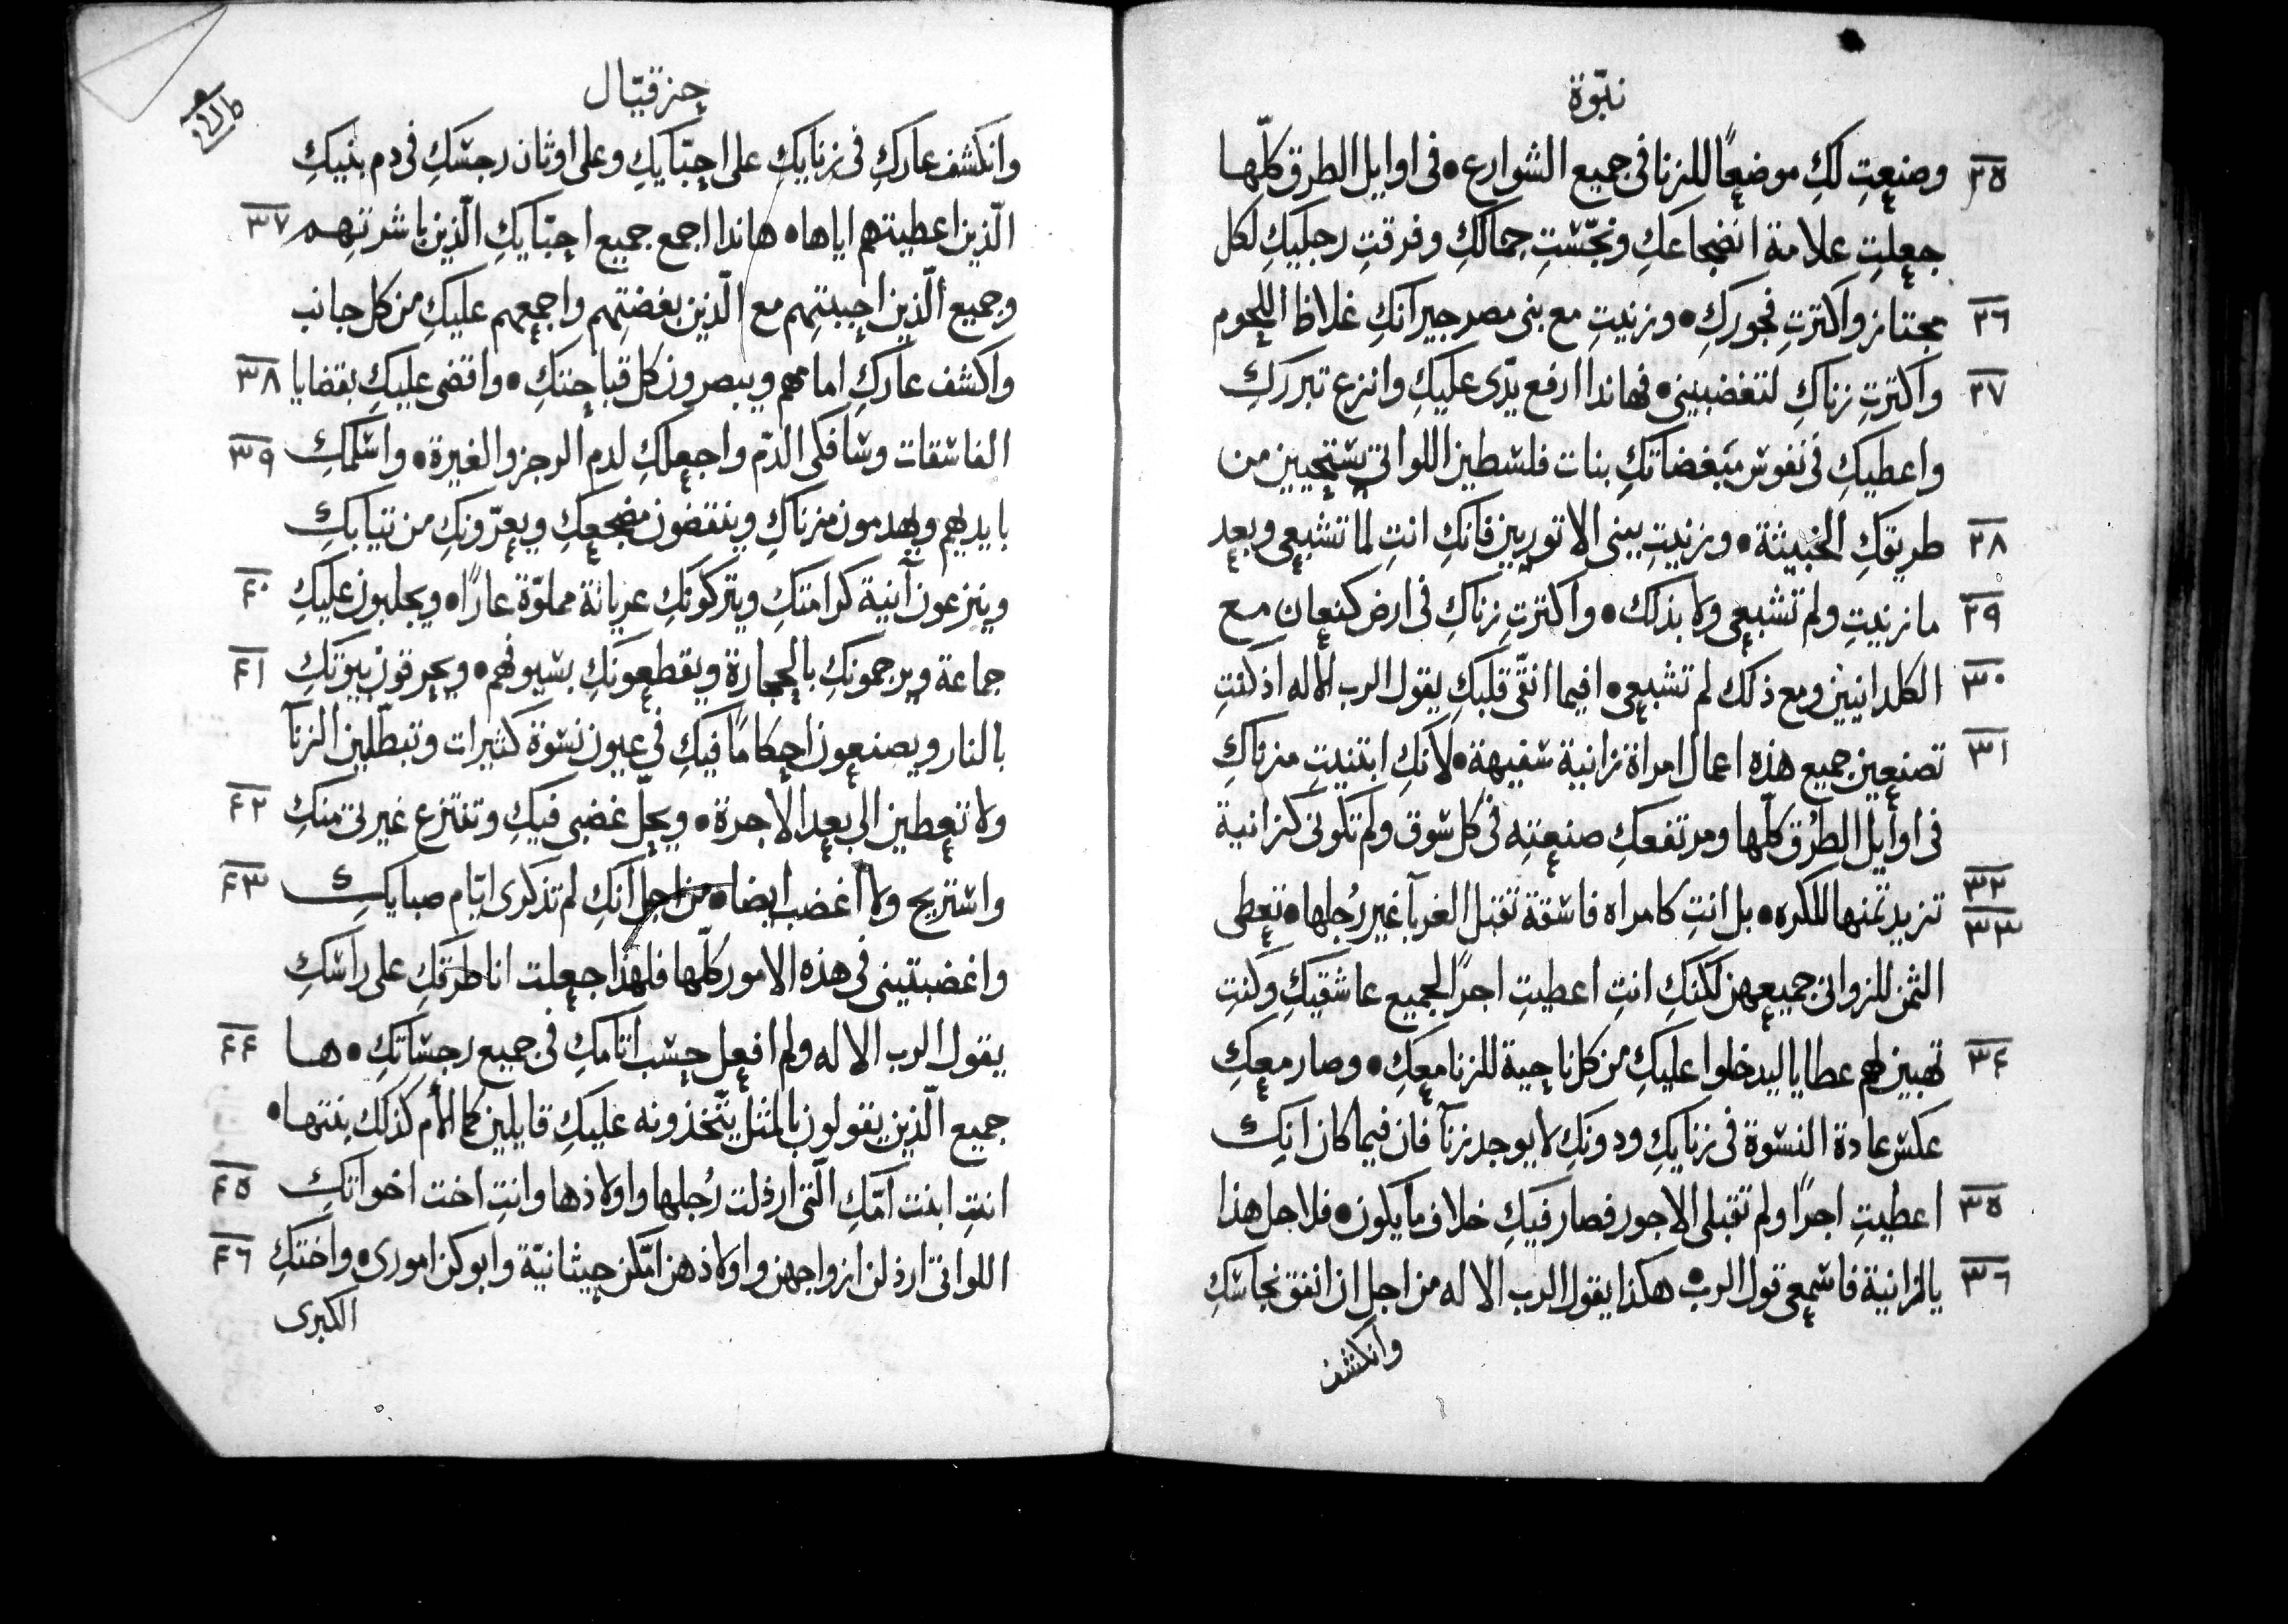 نبّوة
٢٥ وصنعتِ لكِ موضعًا للزنا فى جميع الشوارع • فى اوايل الطرق كلّها
جعلتِ علامة انضجاعكِ ونجّستِ جمالكِ وفرقتِ رجليكِ لكل
٢٦ مجتاز واكثرتِ فجوركِ • وزنيتِ مع بنى مصر جيرانكِ غلاظ اللحوم
٢٧ واكثرتِ زناكِ لتغضبينى • فهانذا ارفع يدّى عليكِ وانزع تبرركِ
واعطيكِ فى نفوس مبغضاتكِ بنات فلسطين اللواتى يستحيين من
٢٨ طريقكِ الخبيثة • وزنيتِ ببنى الاتوريين فانكِ انتِ لما تشبعى وبعد
٢٩ ما زنيتِ ولم تشبعى ولا بذلك • واكثرتِ زناكِ فى ارض كنعان مع
٣٠ الكلدانيين ومع ذلك لم تشبعى • افيما انقّى قلبكِ يقول الرب الاله اذ كنتِ
٣١ تصنعين جميع هذه اعمال امراة زانية سفيهة • لانكِ ابتنيتِ منزناكِ
فى اوايل الطرُق كلّها ومرتفعكِ صنعتِه فى كل سوق ولم تكونى كزانية
٣٢ ٣٣ تزيد ثمنها للكره • بل انتِ كامراه فاسقة تقبل الغربآ غير رُجلها • تعطى
الثمن للزوانى جميعهن لكنكِ انتِ اعطيتِ اجرًا لجميع عاشقيكِ وكنتِ
٣٤ تهبين لهم عطايا ليدخلوا عليكِ من كل ناحية للزنا معكِ • وصار معكِ
عكس عادة النسوة فى زنايكِ ودونكِ لا يوجد زنآ فان فيما كان انكِ
٣٥ اعطيتِ اجرًا ولم تقبلى الاجور فصار فيكِ خلاف ما يكون • فلاجل هذا
٣٦ يا لزانية فاسمعى قول الرب • هكذا يقول الرب الاله من اجل ان انفق نحاسكِ
وانكشف
حزقيّال
وانكشف عاركِ فى زنايكِ على احبّايكِ وعلى اوثان رجسكِ فى دم بنيكِ
الّذين اعطيتهم اياها • هانذا اجمع جميع احبّايكِ الّذين باشرتِهم ٣٧
وجميع الّذين احببتِهم مع الّذين بغضتِهم واجمعهم عليكِ من كل جانب
واكشف عاركِ امامهم ويبصرون كل قباحتكِ • واقضى عليكِ بقضايا ٣٨
الفاسقات وسافكى الدّم واجعلكِ لدم الرجز والغيرة • واسلمكِ ٣٩
بايديهم ويهدمون منزناكِ وينقضون مضجعكِ ويعرّونكِ من ثيابكِ
وينزعون آنية كرامتكِ ويتركونكِ عريانة مملوّة عارًا • ويجلبون عليكِ ٤٠
جماعة ويرجمونكِ بالحجارة ويقطعونكِ بسيوفهم • ويحرقون بيوتكِ ٤١
بالنار ويصنعون احكامًا فيكِ فى عيون نسوة كثيرات وتبطّلين الزنآ
ولا تعطين الى بعد الاجرة • ويحلّ غضبى فيكِ وتنتزع غيرتى منكِ ٤٢
واستريح ولا اغضب ايضا • من اجل انكِ لم تذكرى ايّام صبايكِ ٤٣
واغضبتينى فى هذه الامور كلّها فلهذا جعلت انا طرقكِ على راسكِ
يقول الرب الاله ولم افعل حسب اثامكِ فى جميع رجساتكِ • ها ٤٤
جميع الّذين يقولون بالمثل يتّخذونه عليكِ قايلين كما الأم كذلك بنتها •
انتِ ابنت امّكِ الّتى ارذلت رُجلها واولادها وانتِ اخت اخواتكِ ٤٥
اللواتى ارذلن ازواجهن واولادهن امّكن حيثانيّة وابوكن امورى • واختكِ ٤٦
الكبرى